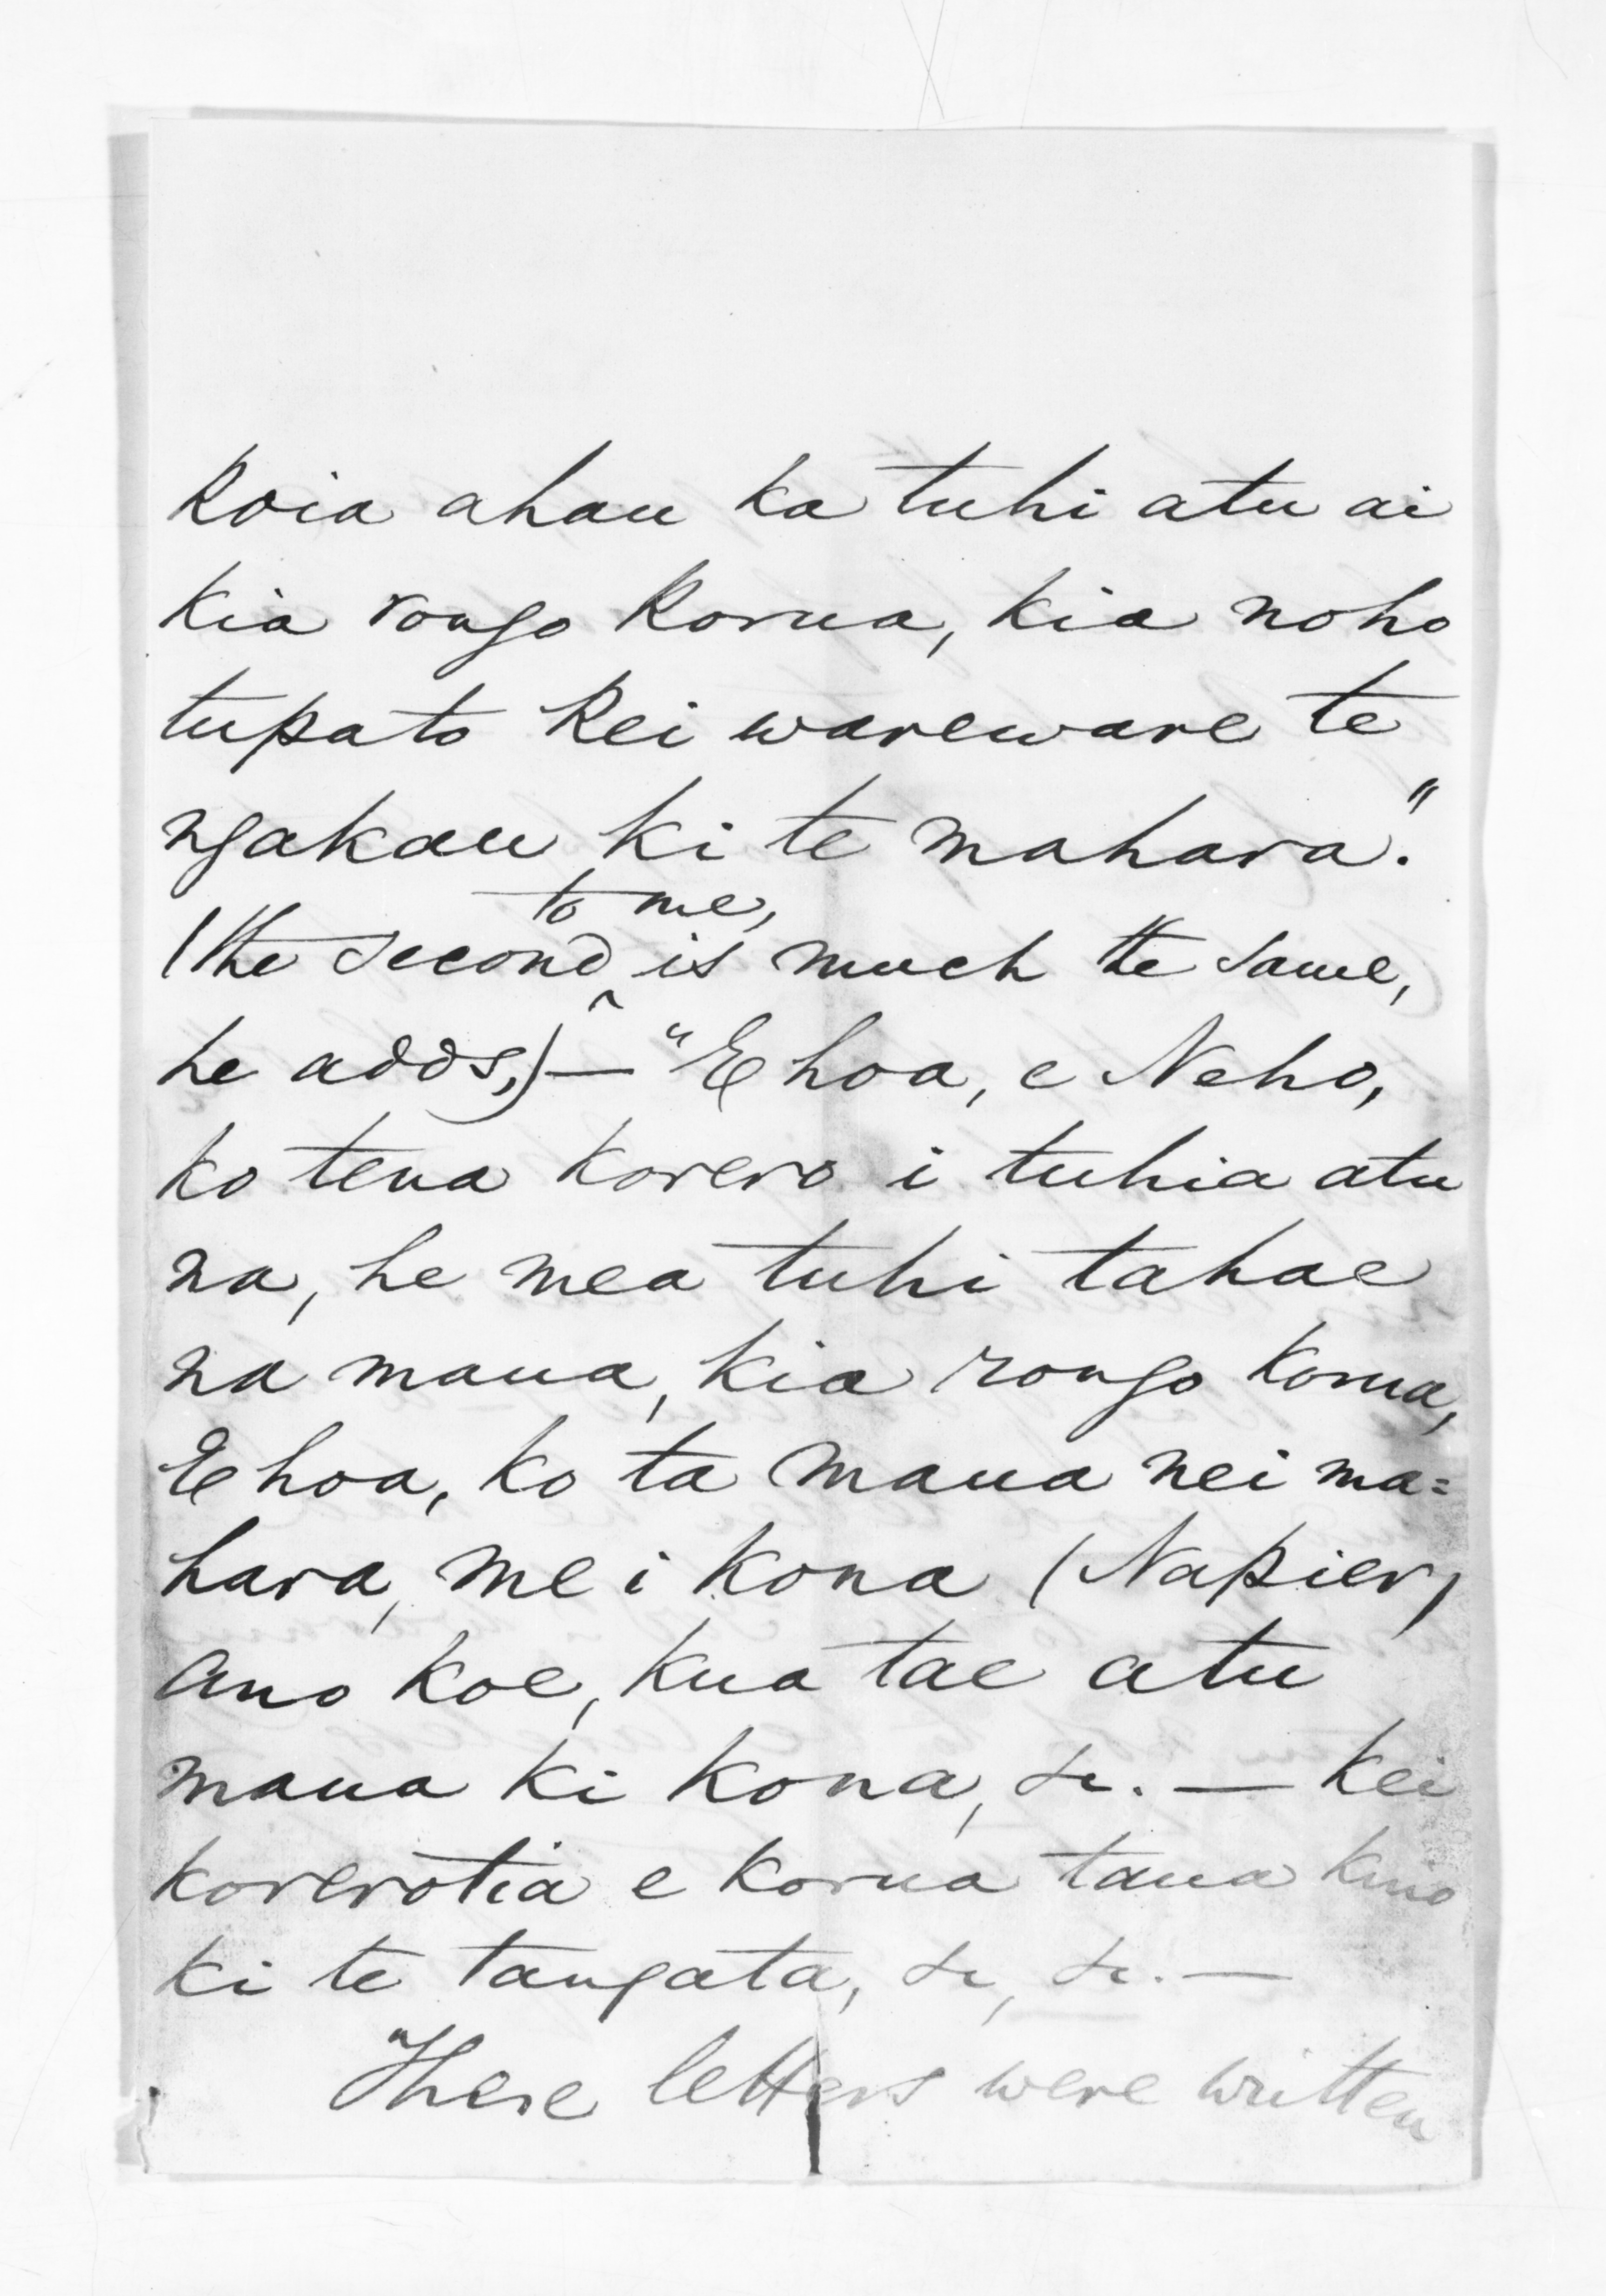 Koia ahau ka tuhi atu ai
kia rongo korua, kia noho
tupato kei wareware te
ngakau ki te mahara."
to me,
(the second ^ is much the same,
he adds,) — "E hoa, e Neho,
ko tena korero i tuhia atu
na, he mea tuhi tahae
na maua, kia rongo korua,
E hoa, ko ta maua nei ma=
hara, me i kona (Napier)
ano koe, kua tae atu
maua ki kona, &c. — kei
korerotia e korua taua kino
ki te tangata, &c, &c. —
These letters were written